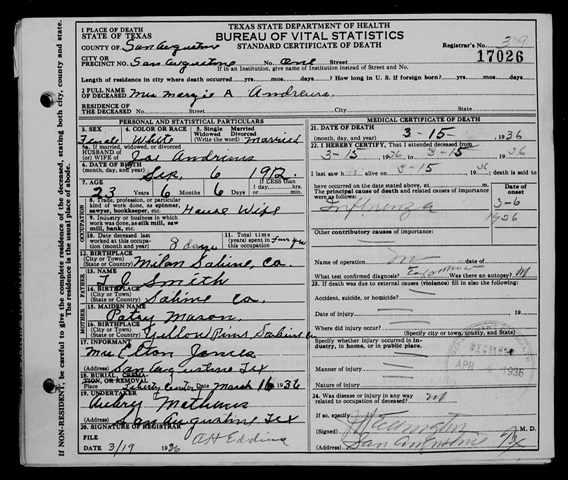 TEXAS STATE DEPARTMENT OF HEALTH
BUREAU OF VITAL STATISTICS
STANDARD CERTIFICATE OF DEATH
1 PLACE OF DEATH
STATE OF TEXAS
COUNTY OF San Augustine
Registrar's No. 39
17026
CITY OR PRECINCT NO. San Augustine One
If in an Institution, give name of Institution instead of Street and No. Street
Length of residence in city where death occurred years months days. How long in U. S. if foreign born? yrs. mos. days
2 FULL NAME OF DECEASED Mrs Margie A Andrews.
RESIDENCE OF THE DECEASED No. Street City State
PERSONAL AND STATISTICAL PARTICULARS
3. SEX Female 4. COLOR OR RACE White 5. Single Widowed Married Divorced (write the word) Married
5a. If married, widowed or divorced
HUSBAND OF
(or) WIFE OF Joe Andrews
6. DATE OF BIRTH
(month, day, and year) Sep. 6 1912.
7. AGE 23 Years 6 Months 6 Days If LESS than 1 day
8. Trade, profession, or particular kind of work done, as spinner, sawyer, bookkeeper, etc. House Wife
9. Industry or business in which work was done, as silk mill, saw mill, bank, etc.
10. Date deceased last worked at this occupation (month and year) 8 days
11. Total time (years) spent in this occupation
12. BIRTHPLACE
(City or Town)
(State or Country) Milan Sabine, Co.
13. NAME J. C. Smith
14. BIRTHPLACE
(City or Town)
(State or Country) Sabine Co.
15. MAIDEN NAME Patsy Mason
16. BIRTHPLACE
(City or Town)
(State or Country) Yellow Pine Sabine Co
17. INFORMANT Mrs Elton Jones
(Address) San Augustine Tex
18. BURIAL, CREMATION, OR REMOVAL
Liberty Center Date March 16 1936
19. UNDERTAKER Aubry Mathews
(Address) San Augustine Tex
20. SIGNATURE OF REGISTRAR
FILE 3/19 1936 A H Eddins
MEDICAL CERTIFICATE OF DEATH
21. DATE OF DEATH
(month, day, and year) 3-15, 1936
22. I HEREBY CERTIFY, That I attended deceased from
3-15 1936 to 3-15 1936
I last saw h alive on 3-15 1936, death is said to
have occurred on the date stated above, at m.
The principal cause of death and related causes of importance were as follows:
Date of onset
Influenza 3-6
1936
Other contributory causes of importance:
Name of operation no
What test confirmed diagnosis? Was there an autopsy? no
23. If death was due to external causes (violence) fill in also the following:
Accident, suicide, or homicide?
Date of injury 19
Where did injury occur?
(Specify city or town, county, and State)
Specify whether injury occurred in industry, in home, or in public place.
Manner of injury
Nature of injury
24. Was disease or injury in any way related to occupation of deceased? no
If so, specify
(Signed) M. D.
(Address) San Augustine Tex
APR 1936
IF NON-RESIDENT, be careful to give the complete residence of the deceased, stating both city, county and state.
The residence is the usual place of abode.
OCCUPATION
FATHER
MOTHER